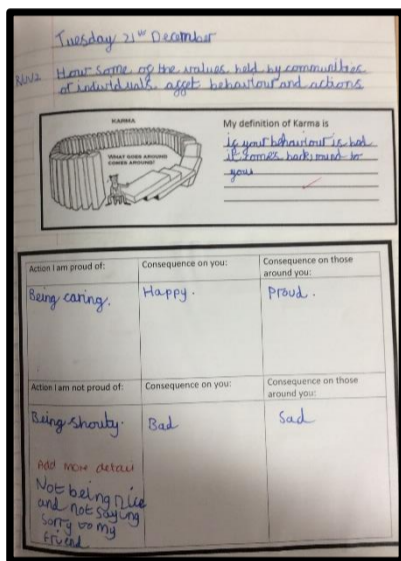 Tuesday 21st December
How some of the values held by communities
or individuals affect behaviour and actions
KARMA
WHAT GOES AROUND
COMES AROUND!
My definition of Karma is
if your behaviour is bad
it comes back round to
you
Action I am proud of:
Consequence on you:
Consequence on those
around you:
Being caring.
Happy.
Proud.
Action I am not proud of:
Consequence on you:
Consequence on those
around you:
Being shouty.
Bad
Sad
Add more detail
Not being nice
and not saying
sorry to my
friend